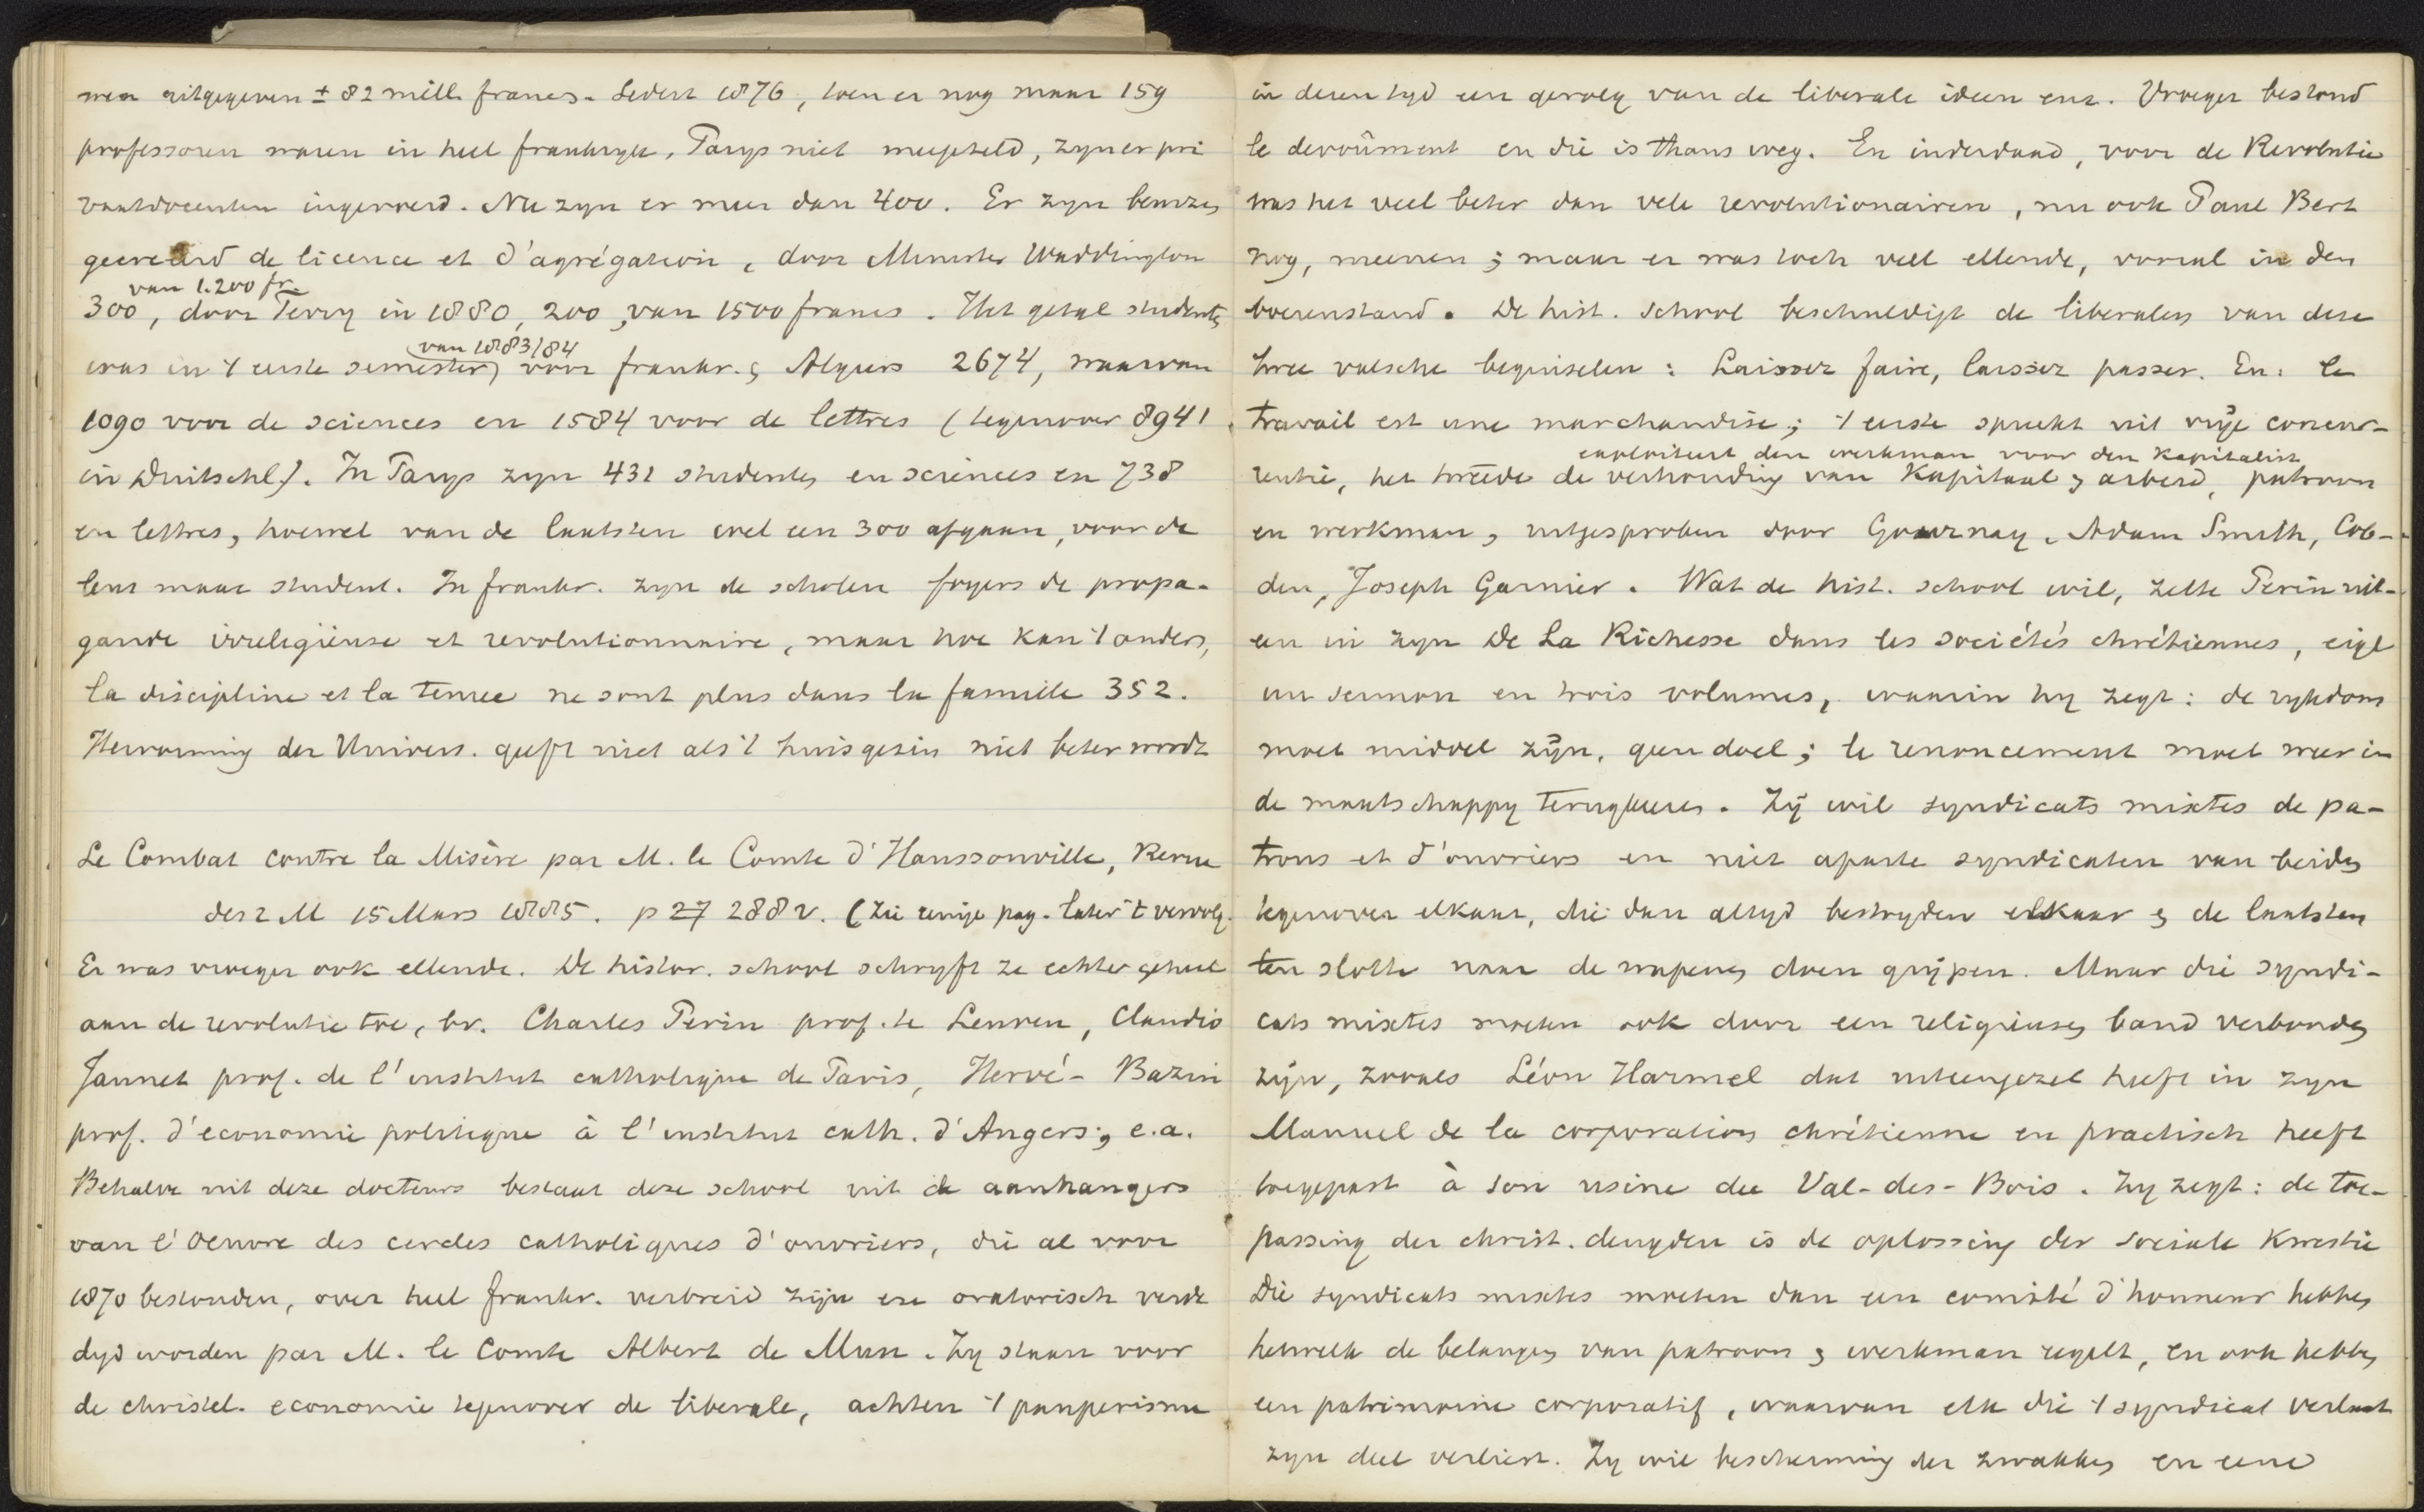 men uitgegeven ± 82 mill. francs. Sedert 1876, toen er nog maar 159
professoren waren in heel frankryk, Parys niet meegeteld, zyn er pri
vaatdocenten ingevoerd. Nu zyn er meer dan 400. Er zyn beurzen
gecreëerd de licence et d'agrégation, door Minister Waddington
van 1.200 fr.
300, door Ferry in 1880, 200, van 1500 francs. Het getal studenten
van 1883/84
was in 't eerste semester, voor frankr. & Algiers 2674, waarvan
1090 voor de sciences en 1584 voor de lettres (tegenover 8941
in Duitschl). In Parys zyn 431 studenten en sciences en 738
en lettres, hoewel van de laatsten wel een 300 afgaan, voor de
leus maar student. In frankr. zyn de scholen foyers de propa-
gande irreligieuse et revolutionnaire, maar hoe kan 't anders,
la discipline et la tenue ne sont plus dans la famille 352.
Hervorming der Univers. geeft niet als 't huisgezin niet beter wordt
Le Combat contre la Misère par M. le Comte d'Haussonville, Revue
des 2 M 15 Mars 1885. p 27 288 v. (Zie eenige pag. later 't vervolg.
Er was vroeger ook ellende. De histor. school schryft ze echter geheel
aan de revolutie toe, bv. Charles Perin prof. te Leuven, Claudio
Jannet prof. de l'institut catholique de Paris, Hervé-Bazin
prof. d'economie politique à l'institut cath. d'Angers; e.a.
Behalve uit deze docteurs bestaat deze school uit de aanhangers
van l'Oeuvre des cercles catholiques d'ouvriers, die al voor
1870 bestonden, over heel frankr. verbreid zijn en oratorisch verde
digd worden par M. le Comte Albert de Mun. Zy staan voor
de christel. economie tegenover de liberale, achten 't pauperisme
in dezen tyd een gevolg van de liberale ideen enz. Vroeger bestond
le devoûment en die is thans weg. En inderdaad, voor de Revolutie
was het veel beter dan vele revolutionairen, nu ook Paul Bert
nog, meenen; maar er was toch veel ellende, vooral in den
boerenstand. De hist. school beschuldigt de liberalen van deze
twee valsche beginselen: Laissez faire, laissez passer. En: le
travail est une marchandise; 't eerste spreekt uit vrije concur-
exploiteert den werkman voor den Kapitalist
rentie, het tweede de verhouding van Kapitaal & arbeid, patroon
en werkman, uitgesproken door Gournay, Adam Smith, Cob-
den, Joseph Garnier. Wat de hist. school wil, zette Perin uit-
een in zyn De La Richesse dans les sociétés chrétiennes, eigl
un sermon en trois volumes, waarin hy zegt: de rykdom
moet middel zijn, geen doel; le renoncement moet weer in
de maatschappy terugkeeren. Zÿ wil syndicats mixtes de pa-
trons et d'ouvriers en niet aparte syndicaten van beiden
tegenover elkaar, die dan altyd bestryden elkaar & de laatsten
ten slotte naar de wapenen doen grijpen. Maar die syndi-
cats mixtes moeten ook door een religieusen band verbonden
zijn, zooals Léon Harmel dat uiteengezet heeft in zyn
Manuel de la corporation chrétienne en practisch heeft
toegepast à son usine du Val-des-Bois. Hy zegt: de toe-
passing der christ. deugden is de oplossing der sociale Kwestie
Die syndicats mixtes moeten dan een comité d'honneur hebben
hetwelk de belangen van patroon & werkman regelt, en ook hebben
een patrimoine corporatif, waarvan elk die 't syndicat verlaat
zyn deel verliest. Zy wil bescherming der zwakken en eene